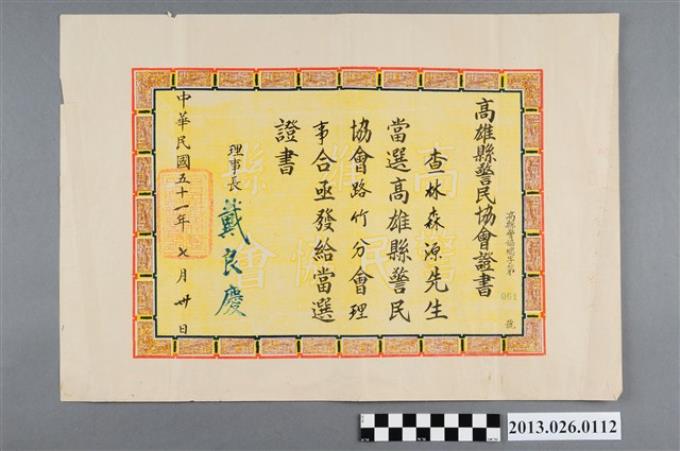 高雄縣警民協會證書
查林森源先生
當選高雄縣警民
協會路竹分會理
事合亟發給當選
證書
理事長 戴良慶
中華民國五十一年 七月 卅日
061
號
2013.026.0112